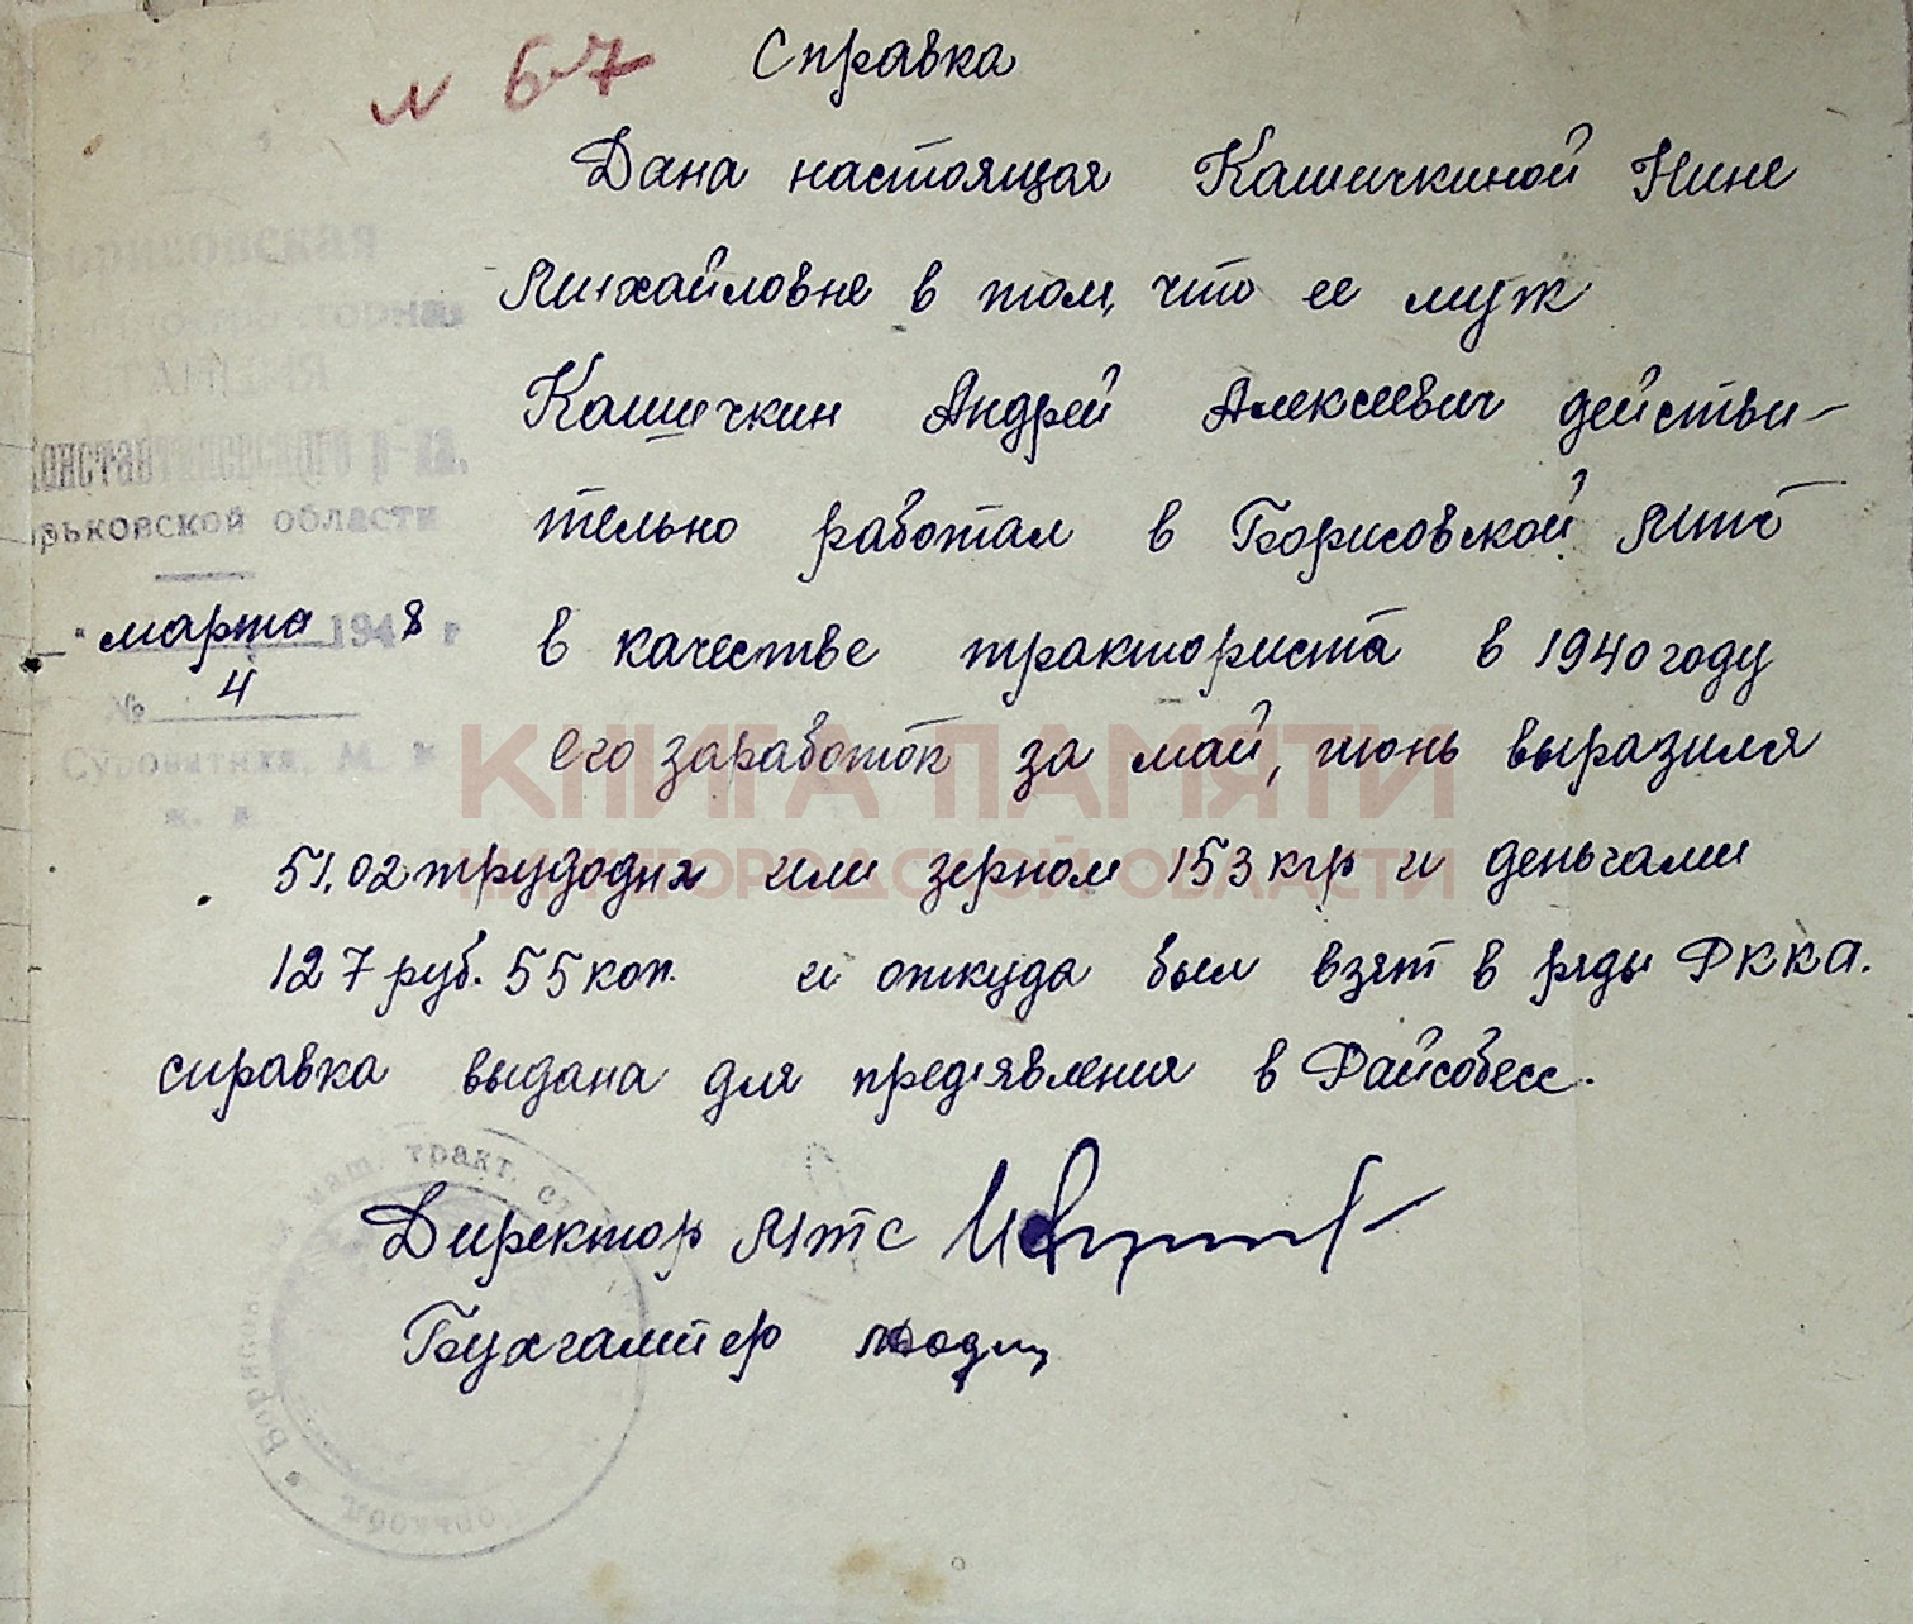 № 67
Справка
Дана настоящая Кашичкиной Нине
Михайловне в том, что ее муж
Кашичкин Андрей Алексеевич действи-
тельно работал в Борисовской МТС
в качестве тракториста в 1940 году
его заработок за май, июнь выразился
51,02 трудодня или зерном 153 кгр и деньгами
127 руб. 55 коп. и откуда был взят в ряды РККА.
справка выдана для предъявления в Райсобесс.
Директор МТС
Бухгалтер
Борисовская
торная
СТАНЦИЯ
Константиновского р-на,
орьковской области
" марта 1948 г
№ 4
Суроватиха, М. К
ж. д.
маш. тракт. ст
КНИГА ПАМЯТИ
НИЖЕГОРОДСКОЙ ОБЛАСТИ